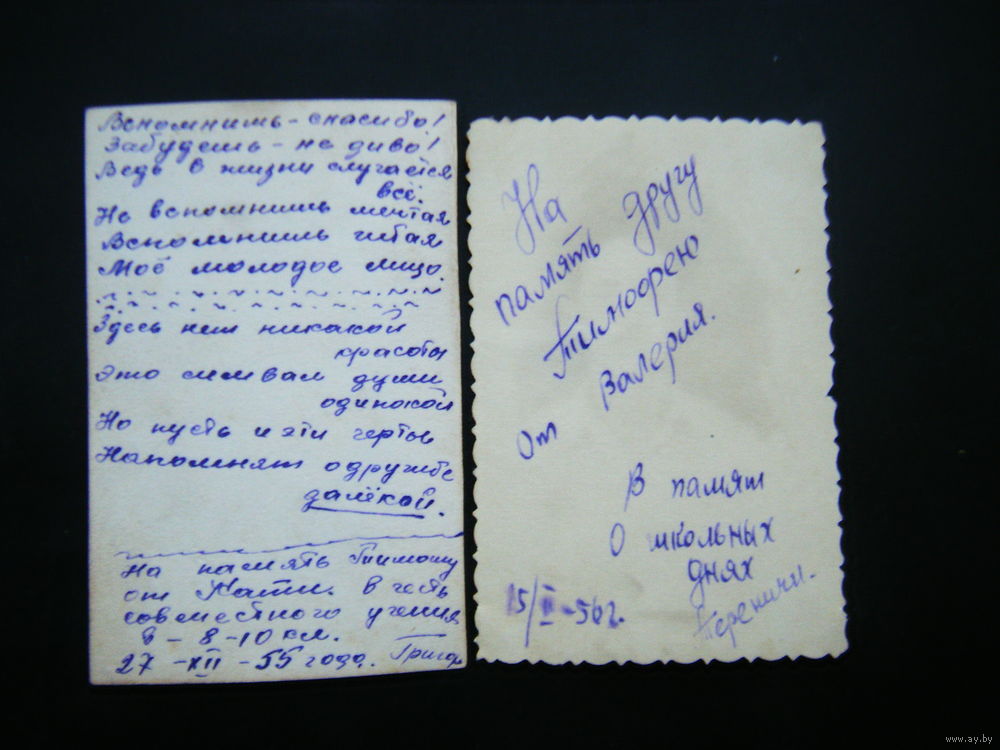 Вспомнишь - спасибо!
Забудешь - не диво!
Ведь в жизни случается
всё.
Не вспомнишь мечтая
Вспомнишь читая
Моё молодое лицо.
Здесь нет никакой
красоты
Это символ души
одинокой
Но пусть и эти черты
Напомнят о дружбе
далёкой.
На память Тимошу
от Кати. В честь
совместного учения
в - 8 - 10 кл.
27 - XII - 55 года.
На
память другу
Тимофею
От Валерия.
В памят
О школьных
днях
15/II - 56 г.
www.ay.by